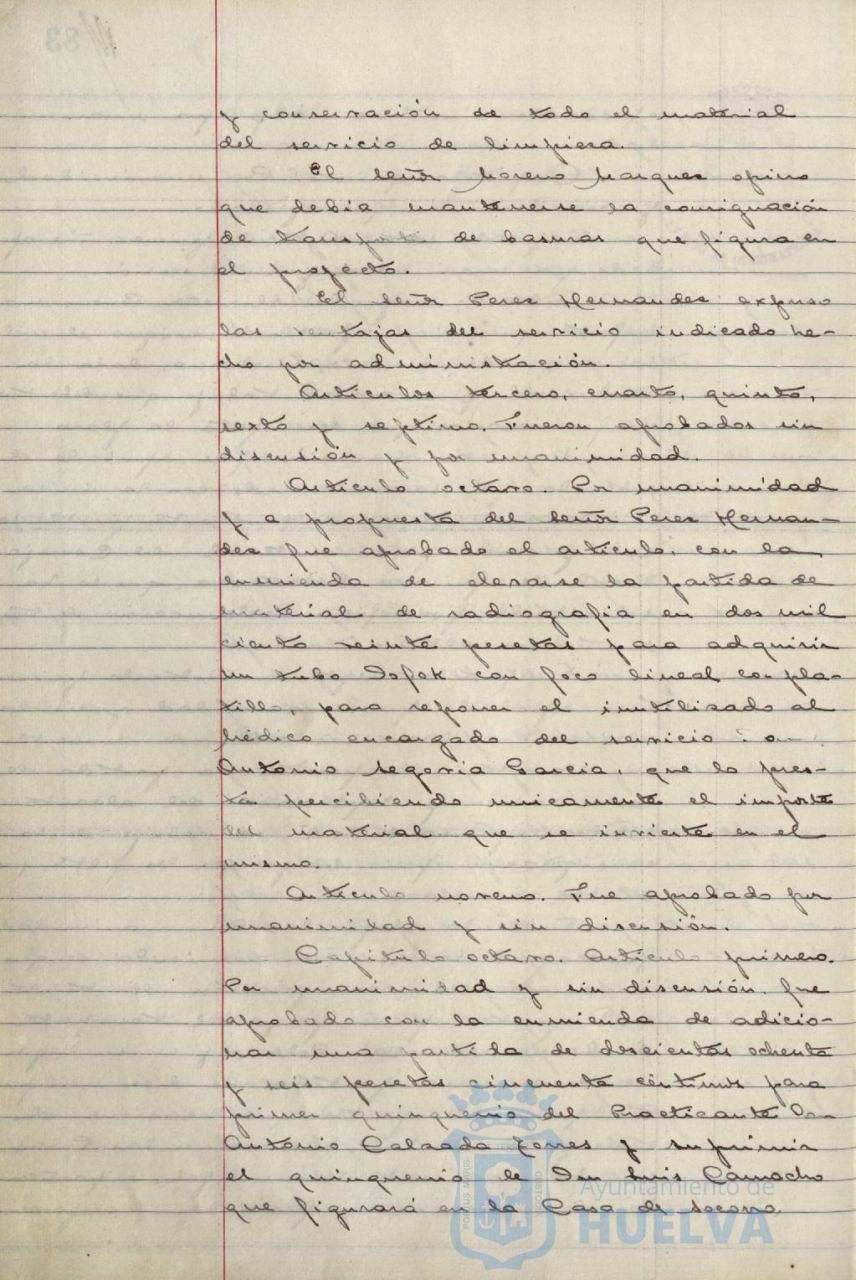 y conservación de todo el material
del servicio de limpieza.
El señor Moreno Marquez opino
que debía mantenerse la consignación
de transporte de basuras que figura en
el proyecto.
El señor Perez Hernandez expuso
las ventajas del servicio indicado he-
cho por administración.
Articulos tercero, cuarto, quinto,
sexto y septimo. Fueron aprobados sin
discusión y por unanimidad.
Articulo octavo. Por unanimidad
y a propuesta del señor Perez Hernan-
dez fue aprobado el articulo, con la
enmienda de elevarse la partida de
material de radiografia en dos mil
ciento veinte pesetas para adquirir
un tubo con foco lineal con pla-
tillo, para reponer el inutilizado al
Médico encargado del servicio
Antonio Segovia Garcia, que lo pres-
ta percibiendo unicamente el importe
del material que se invierte en el
mismo.
Articulo noveno. Fue aprobado por
unanimidad y sin discusión.
Capitulo octavo. Articulo primero.
Por unanimidad y sin discusión fue
aprobado con la enmienda de adicio-
nar una partida de doscientas ochenta
y seis pesetas cincuenta céntimos para
primer quinquenio del Practicante Don
Antonio Calzada Torres y suprimir
el quinquenio de Don Luis Camacho
que figurará en la Casa de Socorro.
Ayuntamiento de
HUELVA